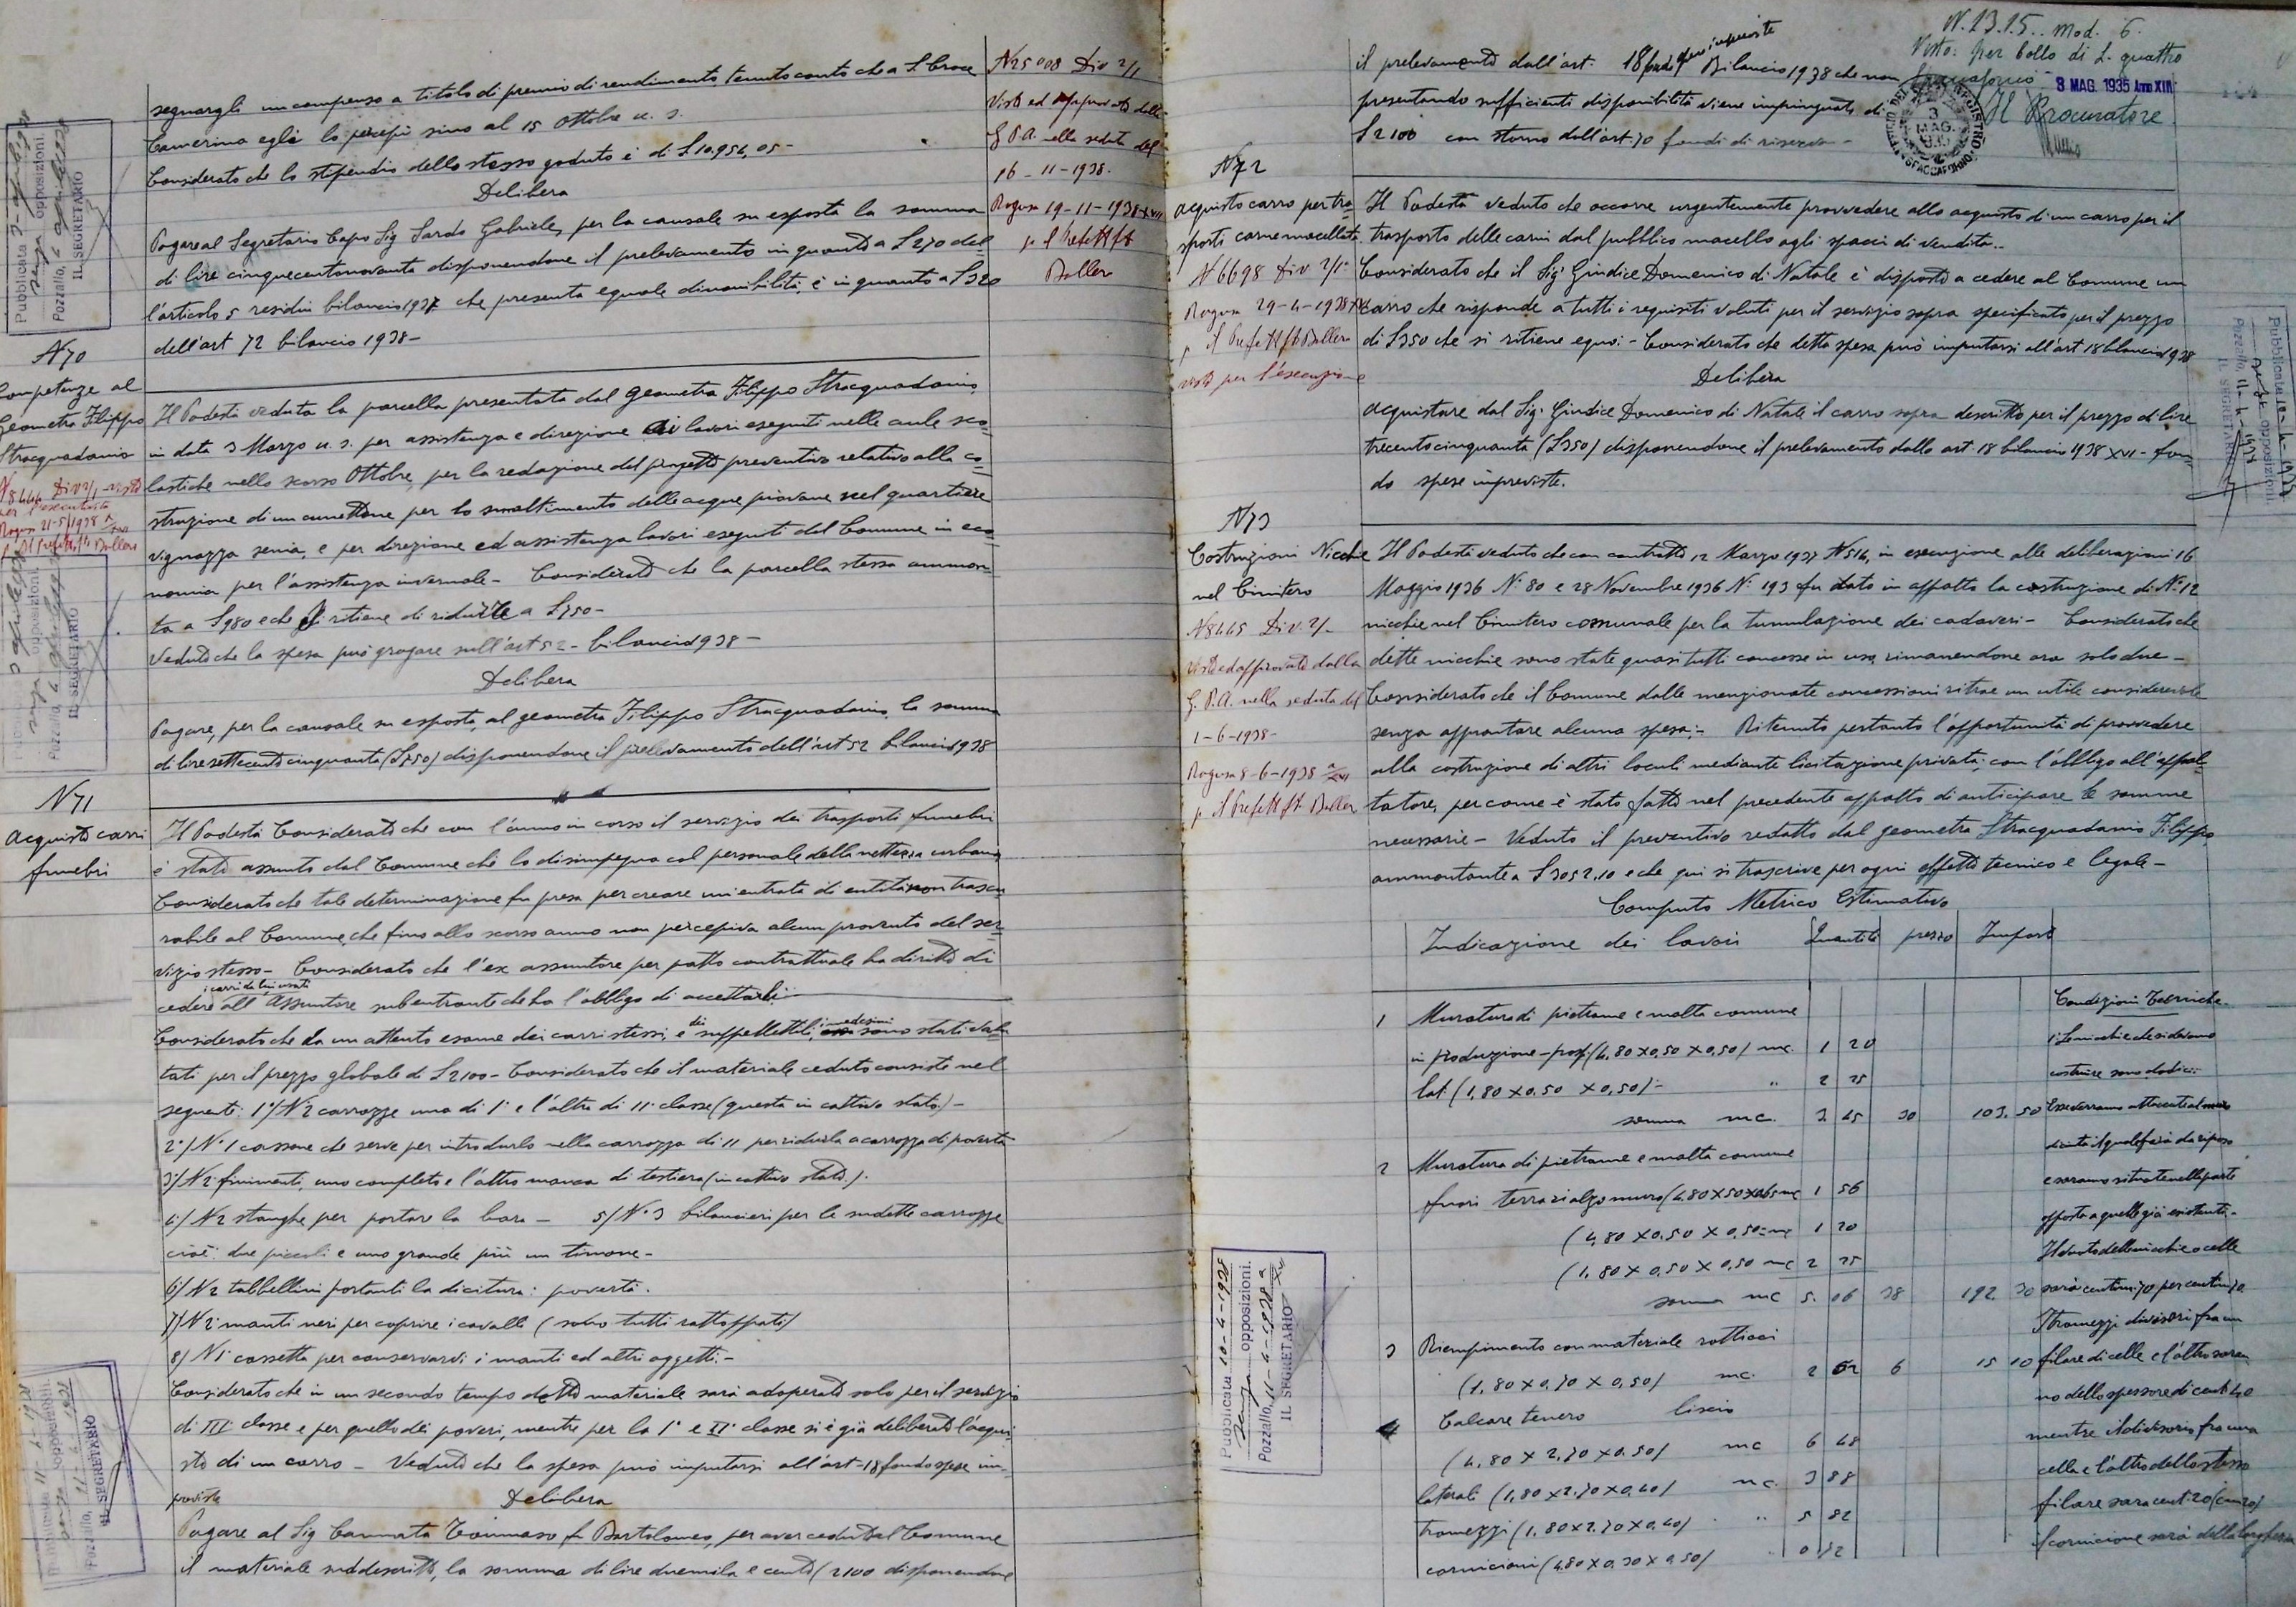 segnargli un compenso a titolo di premio di rendimento, tenuto conto che a S. Croce
Camerina egli lo percepì sino al 15 Ottobre u. s.
Considerato che lo stipendio dello stesso goduto è di £ 10.954,05 -
Delibera
Pagare al Segretario Capo Sig Sardo Gabriele, per la causale su esposta la somma
di lire cinquecentonovanta disponendone il prelevamento in quanto a £ 270 del
l'articolo 5 residui bilancio 1937 che presenta eguale disponibilità, e in quanto a £ 320
dell'art 72 bilancio 1938 -
N 25008 Div 2/1
Visto ed approvato dalla
G P.A. nella seduta del
16 - 11 - 1938.
Ragusa 19 - 11 - 1938 XVII
p. Il Prefetto fto
Ballero
Pubblicata
senza opposizioni.
Pozzallo,
IL SEGRETARIO
N 70
Competenze al
Geometra Filippo
Stracquadanio
N 8444 Div 2/1 - visto
per l'esecutorietà
Ragusa 21-5-1938 XVI
p. Il Prefetto fto Ballero
Il Podestà veduta la parcella presentata dal geometra Filippo Stracquadanio,
in data 3 Marzo u. s. per assistenza e direzione ai lavori eseguiti nelle aule sco=
lastiche nello scorso Ottobre, per la redazione del progetto preventivo relativo alla co=
struzione di un cunettone per lo smaltimento delle acque piovane nel quartiere
vignazza senia, e per direzione ed assistenza lavori eseguiti dal Comune in eco=
nomia per l'assistenza invernale - Considerato che la parcella stessa ammon=
ta a £ 980 e che si ritiene di ridurle a £ 750 -
Veduto che la spesa può gravare sull'art 52 - bilancio 1938 -
Delibera
Pagare, per la causale su esposta, al geometra Filippo Stracquadanio, la somma
di lire settecentocinquanta (£ 750) disponendone il prelevamento dall'art 52 bilancio 1938
opposizioni.
Pozzallo,
IL SEGRETARIO
N 71
Acquisto carri
funebri
Il Podestà Considerato che con l'anno in corso il servizio dei trasporti funebri
è stato assunto dal Comune che lo disimpegna col personale della nettezza urbana
Considerato che tale determinazione fu presa per creare un'entrata di entità non trascu
rabile al Comune, che fino allo scorso anno non percepiva alcun provento del ser=
vizio stesso - Considerato che l'ex assuntore per patto contrattuale ha diritto di
i carri da lui usati
cedere all'Assuntore subentrante che ha l'obbligo di accettarli -
Considerato che da un attento esame dei carri stessi, e dei suppellettili, i medesimi sono stati valu
tati per il prezzo globale di £ 2100 - Considerato che il materiale ceduto consiste nel
seguente: 1°/ N 2 carrozze una di 1ª e l'altra di 11ª classe (questa in cattivo stato) -
2°/ N° 1 cassone che serve per introdurlo nella carrozza di 11 per ridurla a carrozza di povertà
3°/ N 2 finimenti, uno completo e l'altro manca di testiera (in cattivo stato).
4/ N 2 stanghe per portare la bara - 5/ N° 3 bilancieri per le sudette carrozze
cioè: due piccoli e uno grande più un timone -
6/ N 2 tabbellini portanti la dicitura: povertà.
7/ N 2 manti neri per coprire i cavalli (sono tutti rattoppati)
8/ N 1 cassetta per conservarvi i manti ed altri oggetti. -
Considerato che in un secondo tempo detto materiale sarà adoperato solo per il servizio
di III classe e per quello dei poveri, mentre per la 1ª e IIª classe si è già deliberato l'acqui-
sto di un carro - Veduto che la spesa può imputarsi all'art - 18 fondo spese im-
previste
Delibera
Pagare al Sig Cannata Tommaso fu Bartolomeo, per aver ceduto al Comune
il materiale suddescritto, la somma di lire duemila e cento (2100 disponendone
opposizioni.
Pozzallo,
IL SEGRETARIO
il prelevamento dall'art. 18 fondo spese impreviste Bilancio 1938 che non
presentando sufficienti disponibilità viene impinguato di
£ 2100 con storno dall'art. 70 fondi di riserva -
N. 1315. mod. 6.
Visto: per bollo di L. quattro
Spaccaforno
3 MAG. 1935 Anno XIII
Il Procuratore
UFFICIO DEL REGISTRO
3 MAG. 935
SPACCAFORNO
N 72
Acquisto carro per tra
sporti carne macellata
N 6698 Div 2/1ª
Ragusa 29-4-1938 XVI
p. il Prefetto fto Ballero
visto per l'esecuzione
Il Podestà veduto che occorre urgentemente provvedere allo acquisto di un carro per il
trasporto delle carni dal pubblico macello agli spacci di vendita. -
Considerato che il Sig. Giudice Domenico di Natale è disposto a cedere al Comune un
carro che risponde a tutti i requisiti voluti per il servizio sopra specificato per il prezzo
di £ 350 che si ritiene equo: - Considerato che detta spesa può imputarsi all'art 18 bilancio 1938
Delibera
Acquistare dal Sig. Giudice Domenico di Natale il carro sopra descritto per il prezzo di lire
trecentocinquanta (£ 350) disponendone il prelevamento dallo art 18 bilancio 1938 XVI - fon
do spese impreviste.
Pubblicata
senza opposizioni
Pozzallo,
IL SEGRETARIO
N 73
Costruzioni Nicchie
nel Cimitero
N 8445 Div. 2/1
Visto ed approvato dalla
G. P.A. nella seduta del
1 - 6 - 1938 -
Ragusa 8-6-1938 XVI
p. il Prefetto fto Ballero
Il Podestà veduto che con contratto 12 Marzo 1937 N 514, in esecuzione alle deliberazioni 16
Maggio 1936 N° 80 e 28 Novembre 1936 N° 193 fu dato in appalto la costruzione di N° 12
nicchie nel Cimitero comunale per la tumulazione dei cadaveri - Considerato che
dette nicchie sono state quasi tutti concesse in uso, rimanendone ora solo due -
Considerato che il Comune dalle menzionate concessioni ritrae un utile considerevole
senza approntare alcuna spesa: - Ritenuto pertanto l'opportunità di provvedere
alla costruzione di altri loculi mediante licitazione privata, con l'obbligo all'appal=
tatore, per come è stato fatto nel precedente appalto di anticipare le somme
necessarie - Veduto il preventivo redatto dal geometra Stracquadanio Filippo
ammontante a £ 3052,10 e che qui si trascrive per ogni effetto tecnico e legale -
Computo Metrico Estimativo
Indicazione dei lavori Quantità prezzo Importo
Condizioni Tecniche -
1 Muratura di pietrame e malta comune
in fondazione - prosp (4,80 x 0,50 x 0,50) mc. 1 20
lat (1,80 x 0.50 x 0,50) - " 2 25
somma mc. 3. 45 30 103. 50
2 Muratura di pietrame e malta comune
fuori terra rialzo muro (4.80 x 50 x 0,65 mc 1 56
(4,80 x 0.50 x 0,50 = mc 1 20
(1,80 x 0,50 x 0,50 mc 2 25
somma mc 5. 06 38 192. 30
3 Riempimento con materiale rotticci
(1,80 x 0,70 x 0,50) mc. 2 52 6 15 10
4 Calcare tenero liscio
(4,80 x 2,70 x 0.50) mc 6 48
laterali (1,80 x 2.70 x 0,40) mc. 3 88
tramezzi (1,80 x 2.70 x 0,40) " 5 82
cornicioni (4,80 x 0,30 x 0,50) 0 72
1° Le nicchie che si devono
costruire sono dodici:
Esse verranno attaccate al muro
di cinta il quale farà da riposo
e saranno situate nella parte
opposta a quelle già esistenti -
Il vuoto delle nicchie o celle
sarà centim: 70 per centim 70
I tramezzi divisori fra un
filare di celle e l'altro saran
no dello spessore di cent 40
mentre il divisorio fra una
cella e l'altra dello stesso
filare sarà cent: 20 (cm 20)
il cornicione sarà della larghezza
Pubblicata 10-4-1938
senza opposizioni.
Pozzallo, 11-4-1938
IL SEGRETARIO